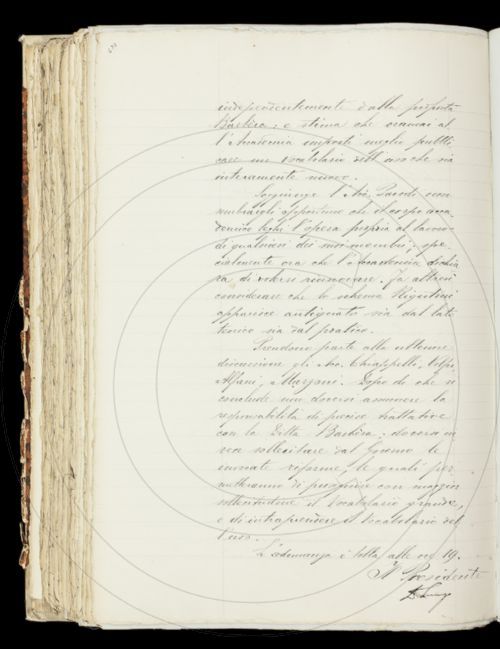 indipendentemente dalla proposta
Barbèra: e stima che oramai al-
l'Accademia importi meglio pubbli-
care un vocabolario dell'uso che sia
interamente nuovo.
Soggiunge l'Arc. Parodi non
sembrargli opportuno che il corpo acca-
demico leghi l'opera propria al lavoro
di qualsiasi dei suoi membri, spe-
cialmente ora che l'Accademia dichia-
ra di volersi rinnovare. Fa altresì
considerare che lo schema Rigutini
apparisce antiquato sia dal lato
teorico sia dal pratico.
Prendono parte alla ulteriore
discussione gli Acc. Chiappelli, Volpi,
Alfani, Mazzoni. Dopo di che si
conclude non doversi assumere la
responsabilità di precise trattative
con la Ditta Barbèra; doversi in-
vece sollecitare dal Governo le
invocate riforme, le quali per-
metteranno di proseguire con maggior
sollecitudine il Vocabolario grande,
e di intraprendere il Vocabolario del-
l'uso.
L'adunanza è tolta alle ore 19.
Il Presidente